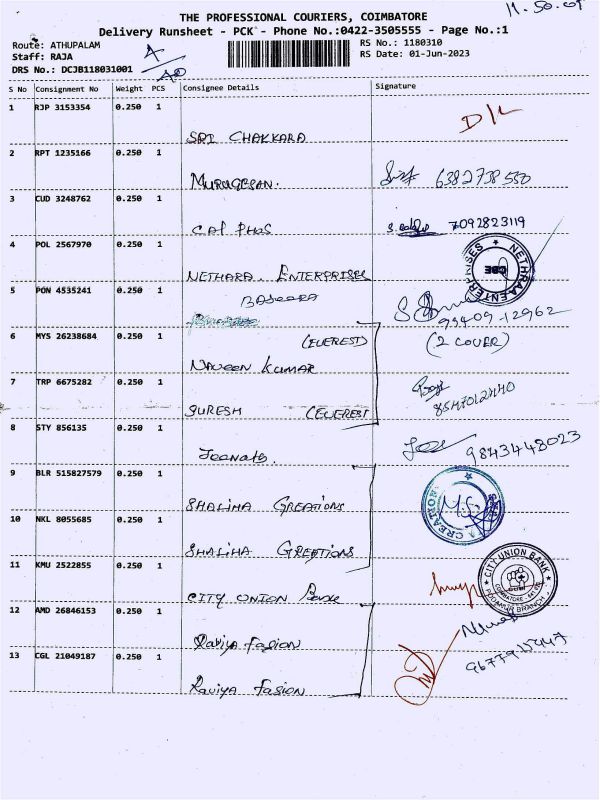 11.50.01
THE PROFESSIONAL COURIERS, COIMBATORE
Delivery Runsheet - PCK - Phone No.:0422-3505555 - Page No.:1
Route: ATHUPALAM
Staff: RAJA
DRS No.: DCJB118031001
RS No.: 1180310
RS Date: 01-Jun-2023
S No Consignment No Weight PCS Consignee Details Signature
1 RJP 3153354 0.250 1 SRI CHAKKARA D/L
2 RPT 1235166 0.250 1 MURUGESAN. 6382738550
3 CUD 3248762 0.250 1 CAL PHOS 7092823119
4 POL 2567970 0.250 1 NETHARA. ENTERPRISES
NETHRAA ENTERPRISES CBE
5 PON 4535241 0.250 1 BASEERA 99409-12962
6 MYS 26238684 0.250 1 (EVEREST) NAVEEN KUMAR (2 COVER)
7 TRP 6675282 0.250 1 SURESH (EVEREST)
8 STY 856135 0.250 1 9843448023
9 BLR 515827579 0.250 1 SHALIHA CREATIONS
10 NKL 8055685 0.250 1 SHALIHA CREATIONS
11 KMU 2522855 0.250 1 CITY UNION Bank
CITY UNION BANK
12 AMD 26846153 0.250 1 Raviya Fasion
13 CGL 21049187 0.250 1 Raviya Fasion